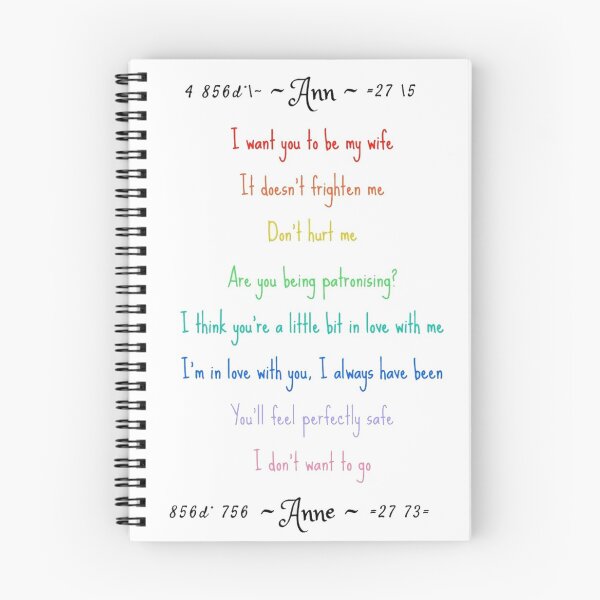 4 856d*\~ ~ Ann ~ =27 \5
I want you to be my wife
It doesn't frighten me
Don't hurt me
Are you being patronising?
I think you're a little bit in love with me
I'm in love with you, I always have been
You'll feel perfectly safe
I don't want to go
856d* 756 ~ Anne ~ =27 73=